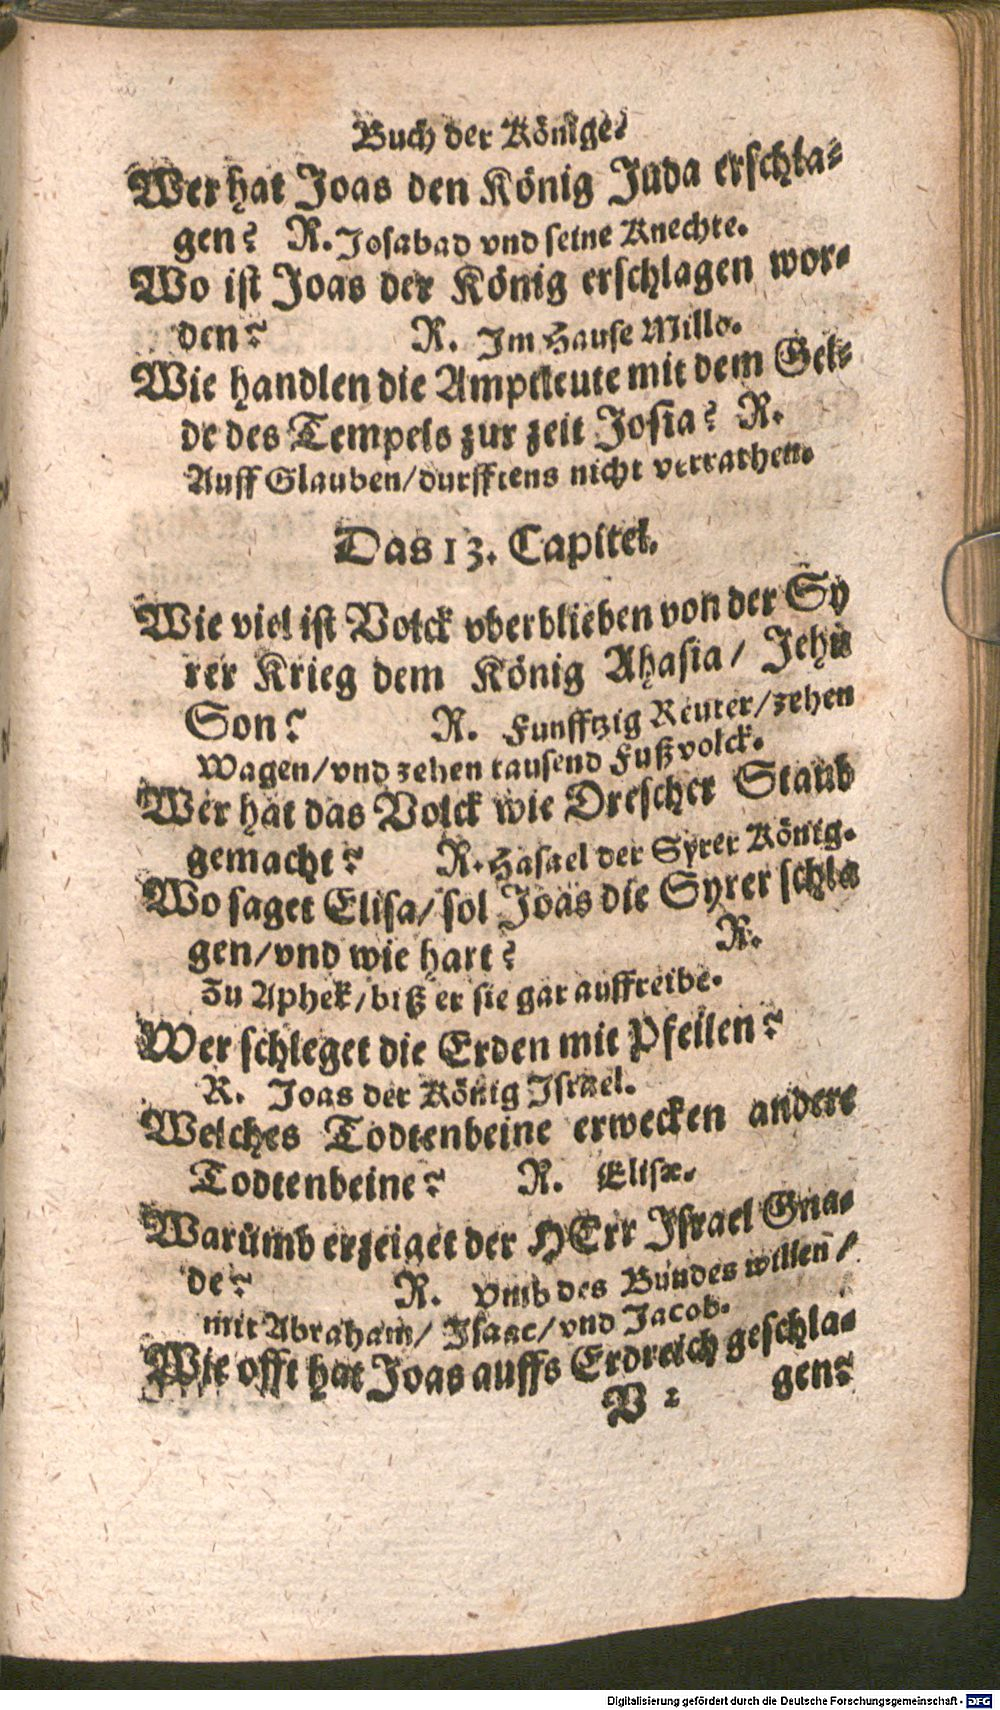 Buch der Könige.
Wer hat Joas den König Juda erschla-
gen? R. Josabad vnd seine Knechte.
Wo ist Joas der König erschlagen wor-
den? R. Im Hause Millo.
Wie handlen die Amptleute mit dem Gel-
de des Tempels zur zeit Josia? R.
Auff Glauben/durfftens nicht verrathen.
Das 13. Capitel.
Wie viel ist Volck vberblieben von der Sy
rer Krieg dem König Ahasia/ Jehu
Son? R. Funfftzig Reuter/zehen
Wagen/vnd zehen tausend Fußvolck.
Wer hat das Volck wie Drescher Staub
gemacht? R. Hasael der Syrer König.
Wo saget Elisa/ sol Joas die Syrer schla
gen/vnd wie hart? R.
Zu Aphek/biß er sie gar auffreibe.
Wer schleget die Erden mit Pfeilen?
R. Joas der König Israel.
Welches Todtenbeine erwecken andere
Todtenbeine? R. Elisæ.
Warůmb erzeiget der HErr Israel Gna-
de? R. Vmb des Bundes willen/
mit Abraham/ Isaac/vnd Jacob.
Wie offt hat Joas auffs Erdreich geschla-
P 2 gen?
Digitalisierung gefördert durch die Deutsche Forschungsgemeinschaft - DFG